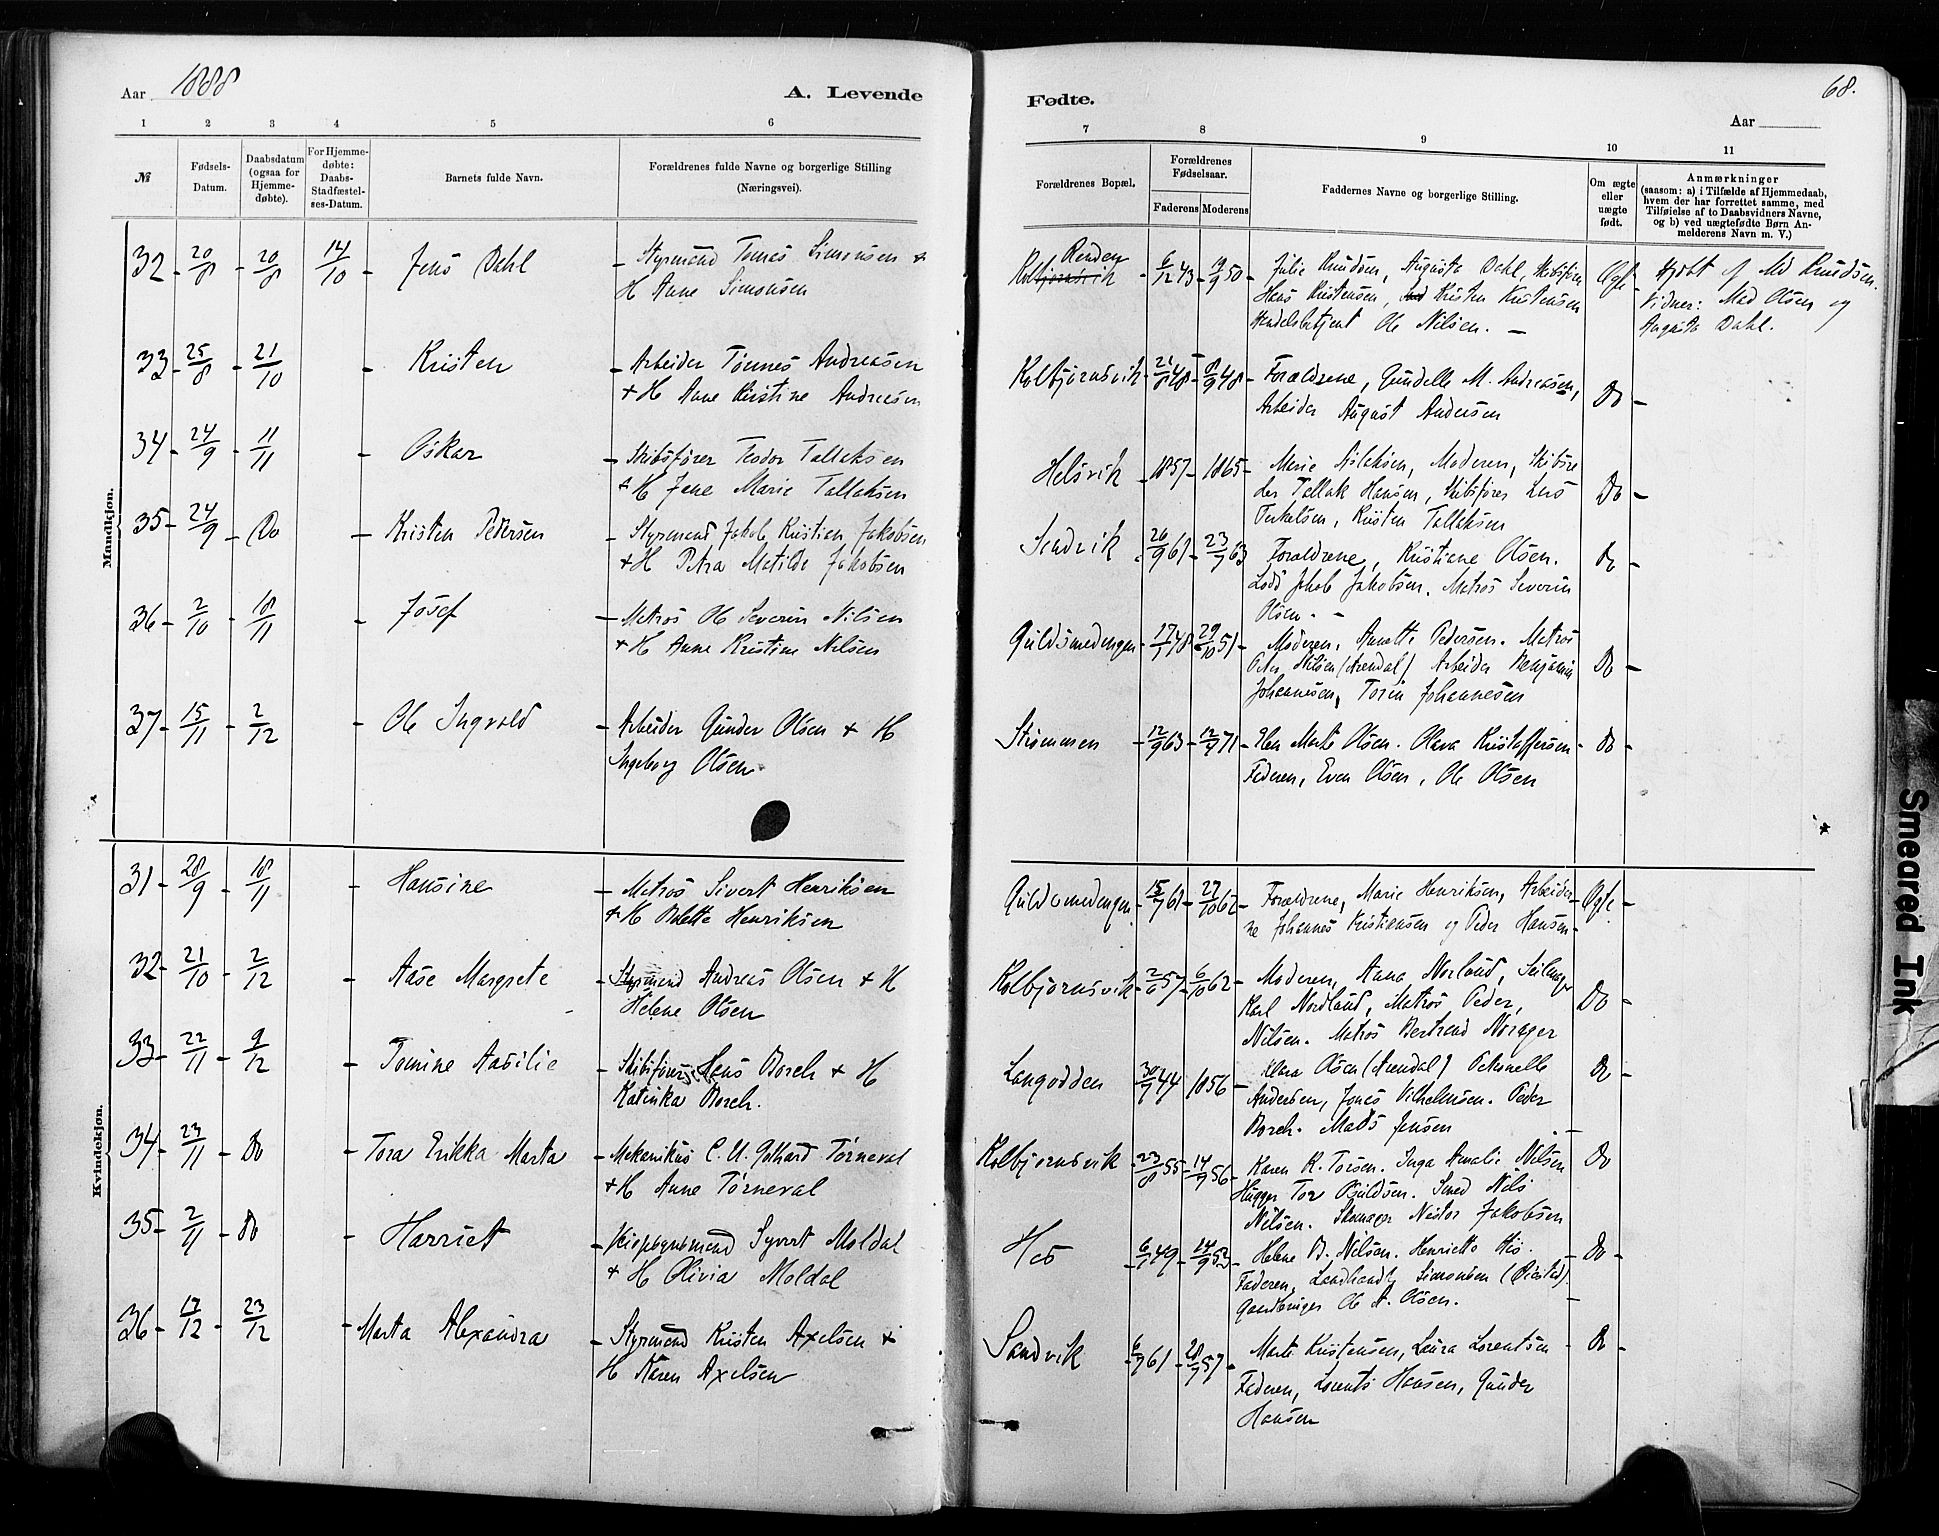 Aar 1888
A. Levende
1 2 3 4 5 6
№
Fødsels-Datum.
Daabsdatum (ogsaa for Hjemmedøbte).
For Hjemmedøbte: Daabs-Stadfæstelses-Datum.
Barnets fulde Navn.
Forældrenes fulde Navne og borgerlige Stilling (Næringsvei).
Mandkjøn.
32 - 20/8 - 20/8 14/10 - Jens Dahl - Styrmand Tomas Simonsen +
H Anne Simonsen
33 - 25/8 - 21/10 - Kristen - Arbeider Tønnes Andreasen
+ H Anne Kristine Andreasen
34 - 24/9 - 11/11 - Oskar - Skibsfører Teodor Tallaksen
+ H Jane Marie Tallaksen
35 - 24/9 - Do - Kristen Pedersen - Styrmand Jakob Kristian Jakobsen
+ H Petra Matilde Jakobsen
36 - 2/10 - 18/11 - Josef - Matros Ole Severin Nilsen
+ H Anne Kristine Nilsen
37 - 15/11 - 2/12 - Ole Ingvald - Arbeider Gunder Olsen + H
Ingeborg Olsen
Kvindekjøn.
31 - 28/9 - 18/11 - Hansine - Matros Sivert Henriksen
+ H Bolette Henriksen
32 - 21/10 - 2/12 - Aase Margrete - Styrmand Andreas Olsen + H
Helene Olsen
33 - 22/11 - 9/12 - Tomine Aasilie - Skibsfører Hans Borch + H
Katinka Borch.
34 - 23/11 - Do - Tora Erikka Marta - Mekanikus C. U. Gothard Törneval
+ H Anne Törneval
35 - 2/11 - Do - Harriet - Syvert Moldal
+ H Olivia Moldal
36 - 17/12 - 23/12 - Marta Alexandra - Styrmand Kristen Axelsen +
H Karen Axelsen
68.
Fødte.
Aar
7 8 9 10 11
Forældrenes Bopæl.
Forældrenes Fødselsaar.
Faderens Moderens
Faddernes Navne og borgerlige Stilling.
Om ægte eller uægte født.
Anmærkninger
(saasom: a) i Tilfælde af Hjemmedaab,
hvem der har forrettet samme, med
Tilføielse af to Daabsvidners Navne,
og b) ved uægtefødte Børn Anmelderens Navn m. V.)
Kolbjørnsvik - 6/12 43 - 19/9 50 - Julie Knudsen, Augusta Dahl, Skibsfører Ægte - Hjdbt af Md Knudsen.
Hans Kristensen, Kristen Kristensen Vidner: Mad Olsen og
Handelsbetjent Ole Nilsen. - Augusta Dahl.
Kolbjørnsvik - 21/8 48 - 8/9 48 - Forældrene, Gundelle M. Andreasen, Do -
Arbeider August Andersen
Helsvik - 1857 - 1865 - Marie Aslaksen, Moderen, Skibsre Do -
der Tallak Hansen, Skibsfører Lars
Terkelsen, Kristen Tallaksen
Sandvik - 26/9 61 - 23/7 63 - Forældrene, Kristiane Olsen. Do -
Lods Jakob Jakobsen. Matros Severin
Olsen. -
Guldsmedengen - 17/1 48 - 29/10 51 - Moderen, Annette Pedersen. Matros Do -
Peter Nilsen (Arendal) Arbeider Benjamin
Johannesen, Torin Johannesen
Strømmen - 12/9 63 - 12/7 71 - Marte Olsen. Olava Kristoffersen - Do -
Faderen, Even Olsen, Ole Olsen
Guldsmedengen - 15/7 61 - 27/10 62 - Forældrene, Marie Henriksen, Arbeider- Ægte -
ne Johannes Kristiansen og Peder Hansen -
Kolbjørnsvik - 2/6 57 - 6/10 62 - Moderen, Anna Norland, Seilmager Do -
Karl Nordland, Matros Peder
Nilsen. Matros Bertrand Norager
Langodden - 30/7 44 1856 - Klara Olsen (Arendal) Petronelle Do -
Andersen, Jonas Vilhelmsen. Peder
Borch. Mads Jensen -
Kolbjørnsvik - 23/8 55 - 14/7 56 - Karen K. Torsen. Inga Amalie Nilsen Do
Hugger Tor Osuldsen. Smed Nils
Nilsen. Skomager Nestor Jakobsen
His - 6/7 49 - 14/9 53 - Helene B. Nilsen. Henriette His. - Do -
Faderen, Landhandl Simonsen
Gaardbruger Ole A. Olsen. -
Sandvik - 6/7 61 - 28/7 57 - Marte Kristensen, Laura Lorentsen - Do -
Faderen, Lorents Hansen, Gunder
Hansen
Smeared Ink